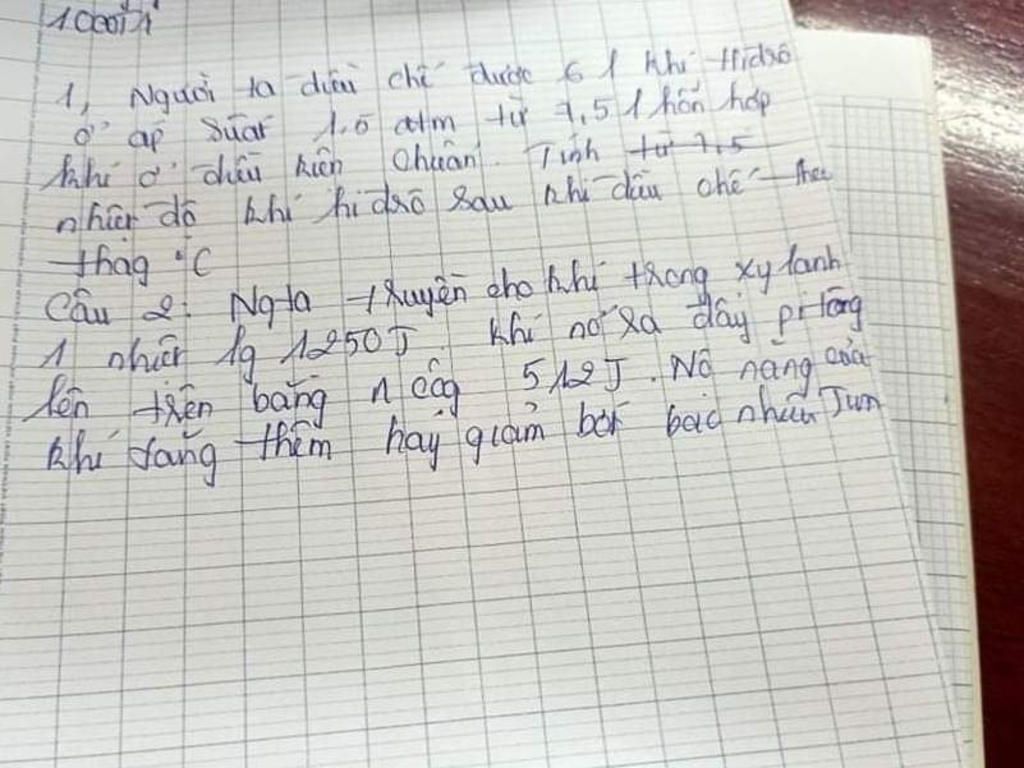 1, Người ta điều chế được 6 l khí Hidrô
ở áp suất 1.5 atm từ 7,5 l hỗn hợp
khí ở điều kiện chuẩn. Tính từ 7,5
nhiệt độ khí hidrô sau khi điều chế theo
thag °C
Câu 2: Ngta truyền cho khí trong xy lanh
1 nhiệt lg 1250J. khí nở ra đẩy pi tông
lên trên bằng 1 côg 512J. Nội năng của
khí tăng thêm hay giảm bớt bao nhiêu Jun